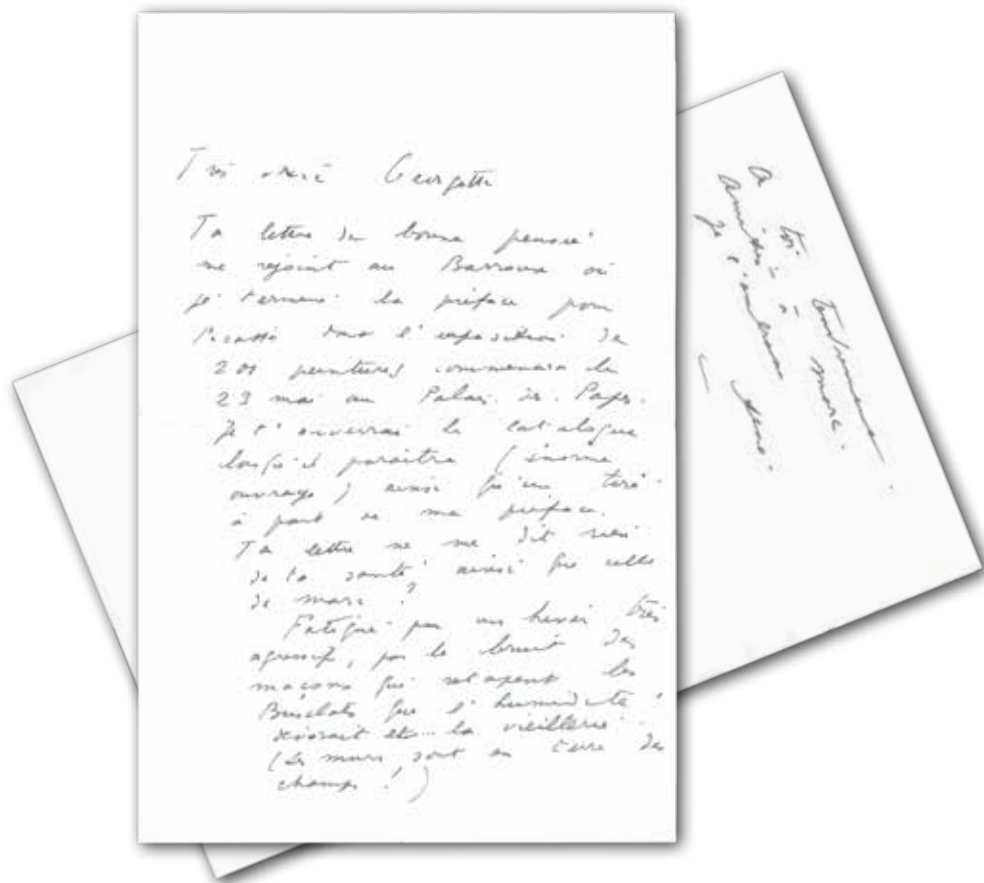 Très chère Georgette
Ta lettre de bonne pensée
me rejoint au Barroux où
je termine la préface pour
Picasso dont l'exposition de
201 peintures commencera le
23 mai au Palais des Papes.
Je t'enverrai le catalogue
lorsqu'il paraîtra (énorme
ouvrage) ainsi qu'un tiré
à part de ma préface.
Ta lettre ne me dit rien
de ta santé, ainsi que celle
de Marc ?
Fatigué par un hiver très
agressif, par le bruit des
maçons qui retapent les
Busclats que l'humidité
dévorait et... la vieillerie
(les murs sont en terre des
champs !)
À toi tendrement
amitiés à Marc.
Je t'embrasse
René.